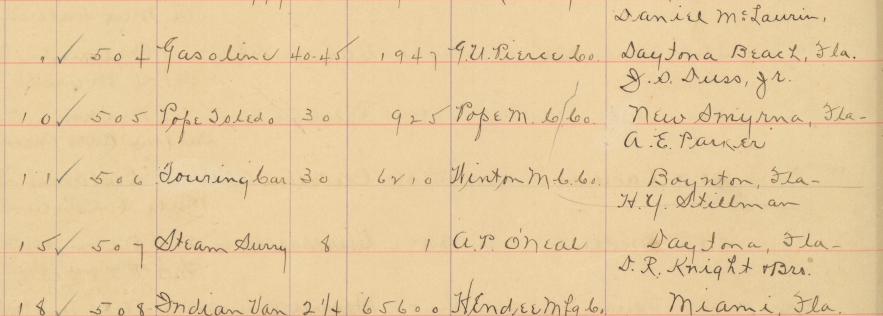 Daniel McLaurin,
" ✓ 504 Gasoline 40-45 1947 G.N. Pierce Co. Daytona Beach, Fla.
J. S. Duss, Jr.
10 ✓ 505 Pope Toledo 30 925 Pope M. C/Co. New Smyrna, Fla-
A. E. Parker
11 ✓ 506 Touring Car 30 6210 Winton M.C.Co. Boynton, Fla-
H. Y. Stillman
15 ✓ 507 Steam Surry 8 1 A. P. O'Neal Daytona, Fla-
D. R. Knight & Bro.
18 ✓ 508 Indian Van 2 1/4 65600 Hendee Mfg C. Miami, Fla.